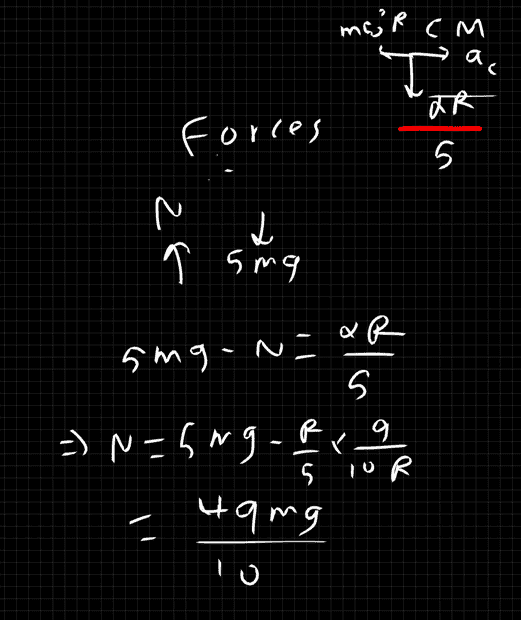 mω²R C M
a_c
αR/5
Forces
N
5mg
5mg - N = αR/5
=> N = 5mg - R/5 × g/10R
= 49mg/10